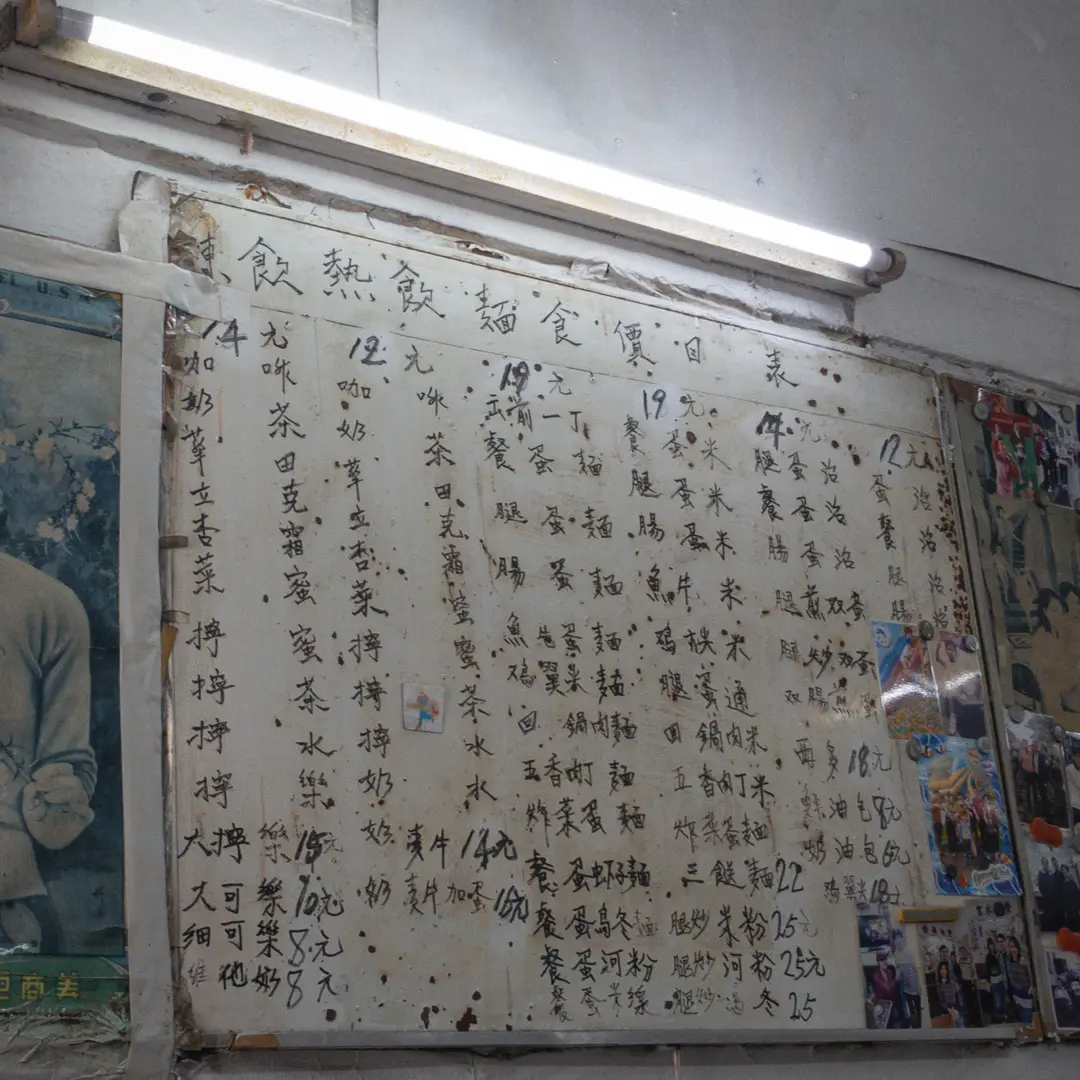 凍飲熱飲麵食價目表
14元
咖啡
奶茶
華田
立克
杏霜
菜蜜
檸蜜
檸茶
檸水
檸樂
大檸樂15元
大可樂10元
細可樂8元
維他奶8元
12元
咖啡
奶茶
華田
立克
杏霜
菜蜜
檸蜜
檸茶
檸水
奶水
牛14元
牛加蛋18元
19元
前一丁
餐蛋麵
腿蛋麵
腸蛋麵
魚蛋麵
鷄翼米麵
回鍋肉麵
五香肉丁麵
炸菜蛋麵
餐蛋蝦子麵
餐蛋烏冬麵
餐蛋河粉
餐蛋米線
19元
餐蛋米
腿蛋米
腸蛋米
魚牛米
鷄米
腿蛋通
回鍋肉米
五香肉丁米
炸菜蛋麵
三餸麵22
腿炒米粉25元
腿炒河粉25元
腿炒烏冬25
14元
腿蛋治
餐蛋治
腸蛋治
腿煎双蛋
腿炒双蛋
双腸煎蛋
西多18元
油包8元
奶油包6元
鷄翼米18元
12元
蛋治
餐治
腿治
腸治
U.S.A
商美